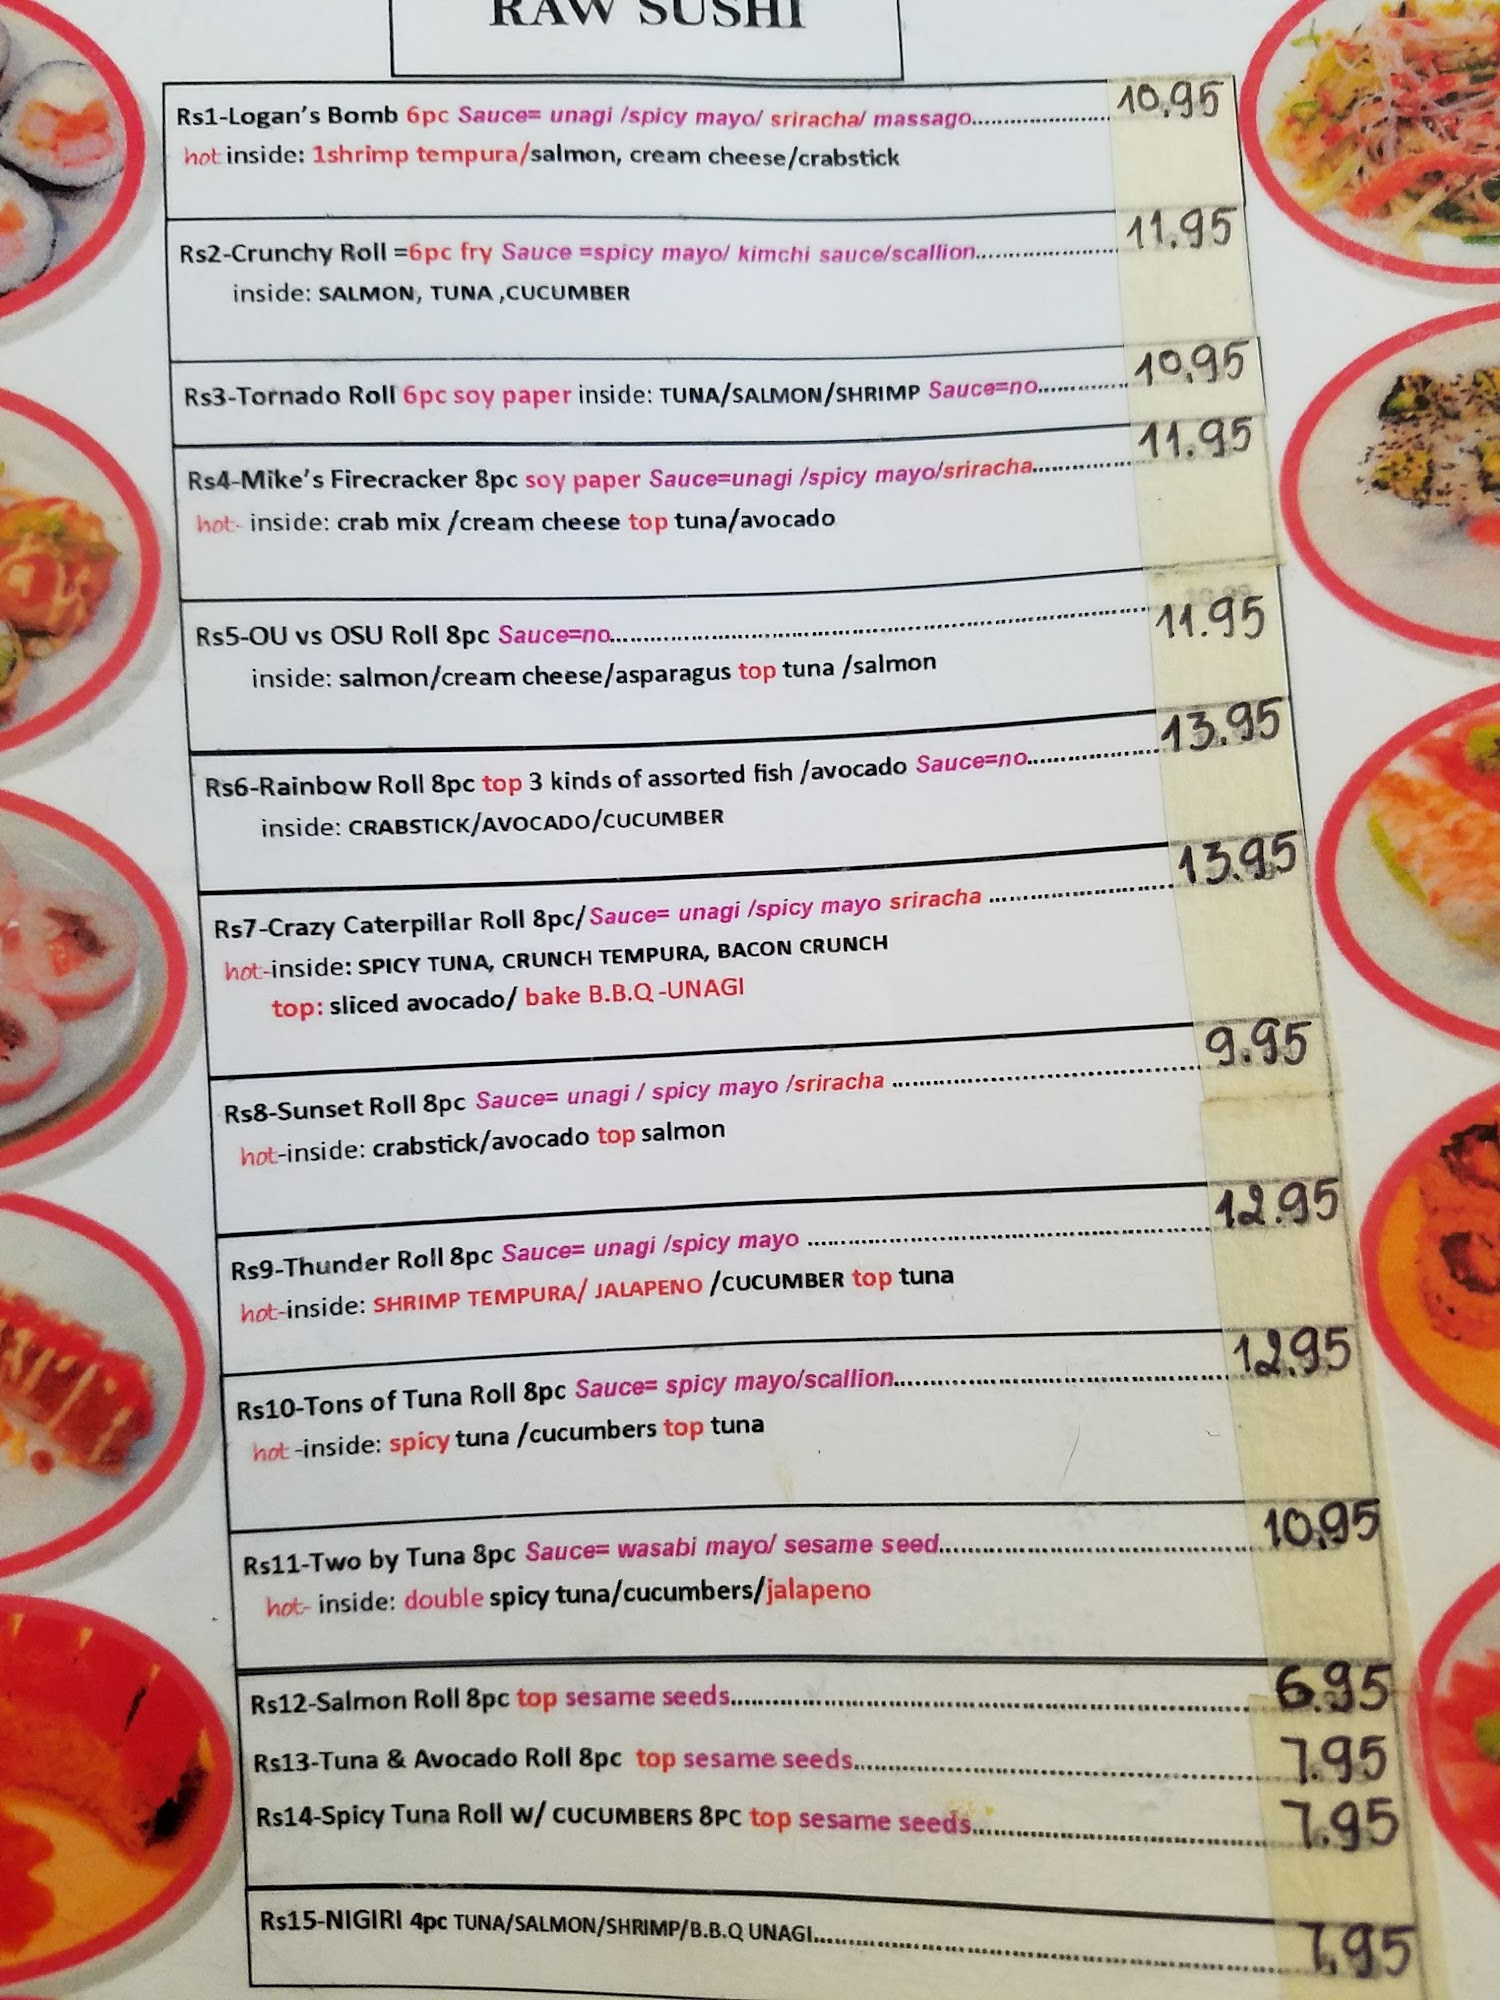 RAW SUSHI
Rs1-Logan's Bomb 6pc Sauce= unagi /spicy mayo/ sriracha/ massago.......................10.95
hot inside: 1shrimp tempura/salmon, cream cheese/crabstick
Rs2-Crunchy Roll =6pc fry Sauce =spicy mayo/ kimchi sauce/scallion.......................11.95
inside: SALMON, TUNA ,CUCUMBER
Rs3-Tornado Roll 6pc soy paper inside: TUNA/SALMON/SHRIMP Sauce=no..............10.95
Rs4-Mike's Firecracker 8pc soy paper Sauce=unagi /spicy mayo/sriracha...............11.95
hot- inside: crab mix /cream cheese top tuna/avocado
Rs5-OU vs OSU Roll 8pc Sauce=no................................................................................11.95
inside: salmon/cream cheese/asparagus top tuna /salmon
Rs6-Rainbow Roll 8pc top 3 kinds of assorted fish /avocado Sauce=no....................13.95
inside: CRABSTICK/AVOCADO/CUCUMBER
Rs7-Crazy Caterpillar Roll 8pc/Sauce= unagi /spicy mayo sriracha ...........................13.95
hot-inside: SPICY TUNA, CRUNCH TEMPURA, BACON CRUNCH
top: sliced avocado/ bake B.B.Q -UNAGI
Rs8-Sunset Roll 8pc Sauce= unagi / spicy mayo /sriracha .............................................9.95
hot-inside: crabstick/avocado top salmon
Rs9-Thunder Roll 8pc Sauce= unagi /spicy mayo ............................................................12.95
hot-inside: SHRIMP TEMPURA/ JALAPENO /CUCUMBER top tuna
Rs10-Tons of Tuna Roll 8pc Sauce= spicy mayo/scallion..................................................12.95
hot -inside: spicy tuna /cucumbers top tuna
Rs11-Two by Tuna 8pc Sauce= wasabi mayo/ sesame seed...............................................10.95
hot- inside: double spicy tuna/cucumbers/jalapeno
Rs12-Salmon Roll 8pc top sesame seeds..............................................................................6.95
Rs13-Tuna & Avocado Roll 8pc top sesame seeds..............................................................7.95
Rs14-Spicy Tuna Roll W/ CUCUMBERS 8PC top sesame seeds............................................7.95
Rs15-NIGIRI 4pc TUNA/SALMON/SHRIMP/B.B.Q UNAGI.....................................................7.95